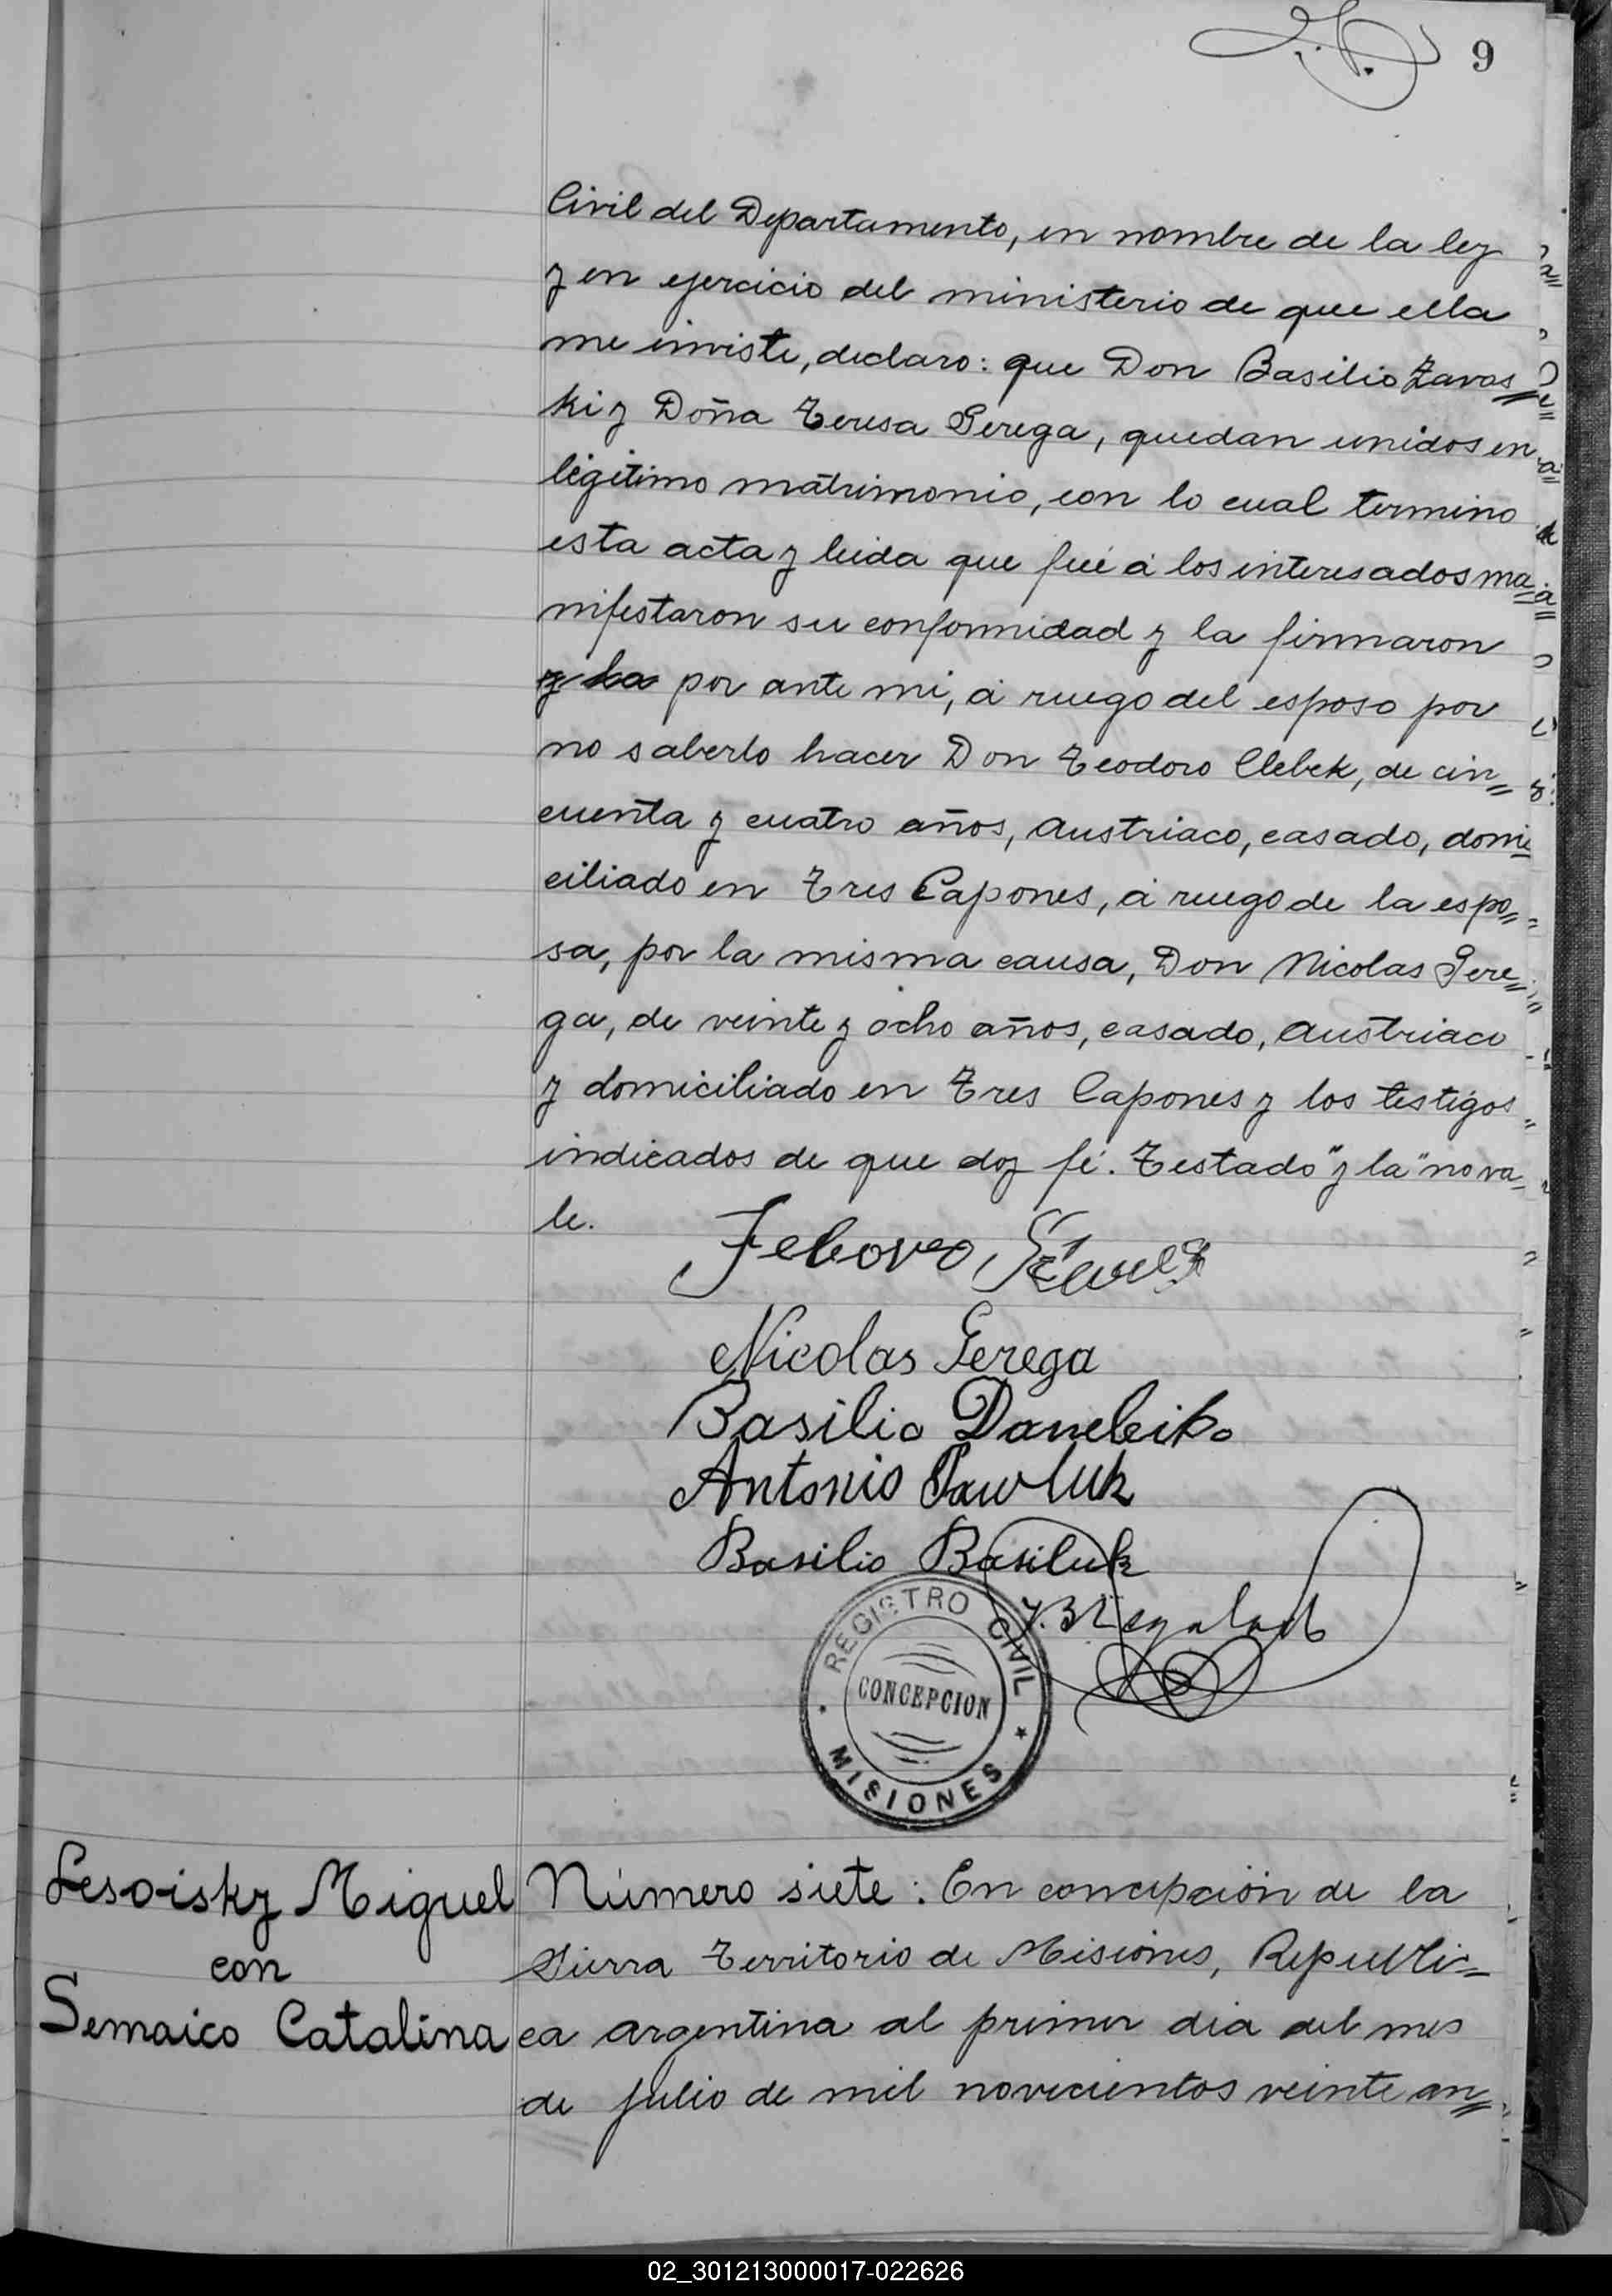 9
Civil del Departamento, en nombre de la ley
y en ejercicio del ministerio de que ella
me inviste, declaro: que Don Basilio Zavas=
ki y Doña Teresa Gerega, quedan unidos en
legitimo matrimonio, con lo cual termino
esta acta y leida que fué á los interesados ma=
nifestaron su conformidad y la firmaron
y la por ante mi, á ruego del esposo por
no saberlo hacer Don Teodoro Clebek, de cin=
cuenta y cuatro años, austriaco, casado, domi=
ciliado en Tres Capones, á ruego de la espo=
sa, por la misma causa, Don Nicolas Gere=
ga, de veinte y ocho años, casado, austriaco
y domiciliado en Tres Capones y los testigos
indicados de que doy fé. Testado "y la" no va=
le.
Nicolas Gerega
Basilio
Antonio Pawluk
Basilio Basiluk
REGISTRO CIVIL
CONCEPCION
MISIONES
Lesoisky Miguel
con
Semaico Catalina
Número siete: En concepción de la
Sierra Territorio de Misiones, Republi=
ca argentina al primer dia del mes
de julio de mil novecientos veinte an=
02_301213000017-022626